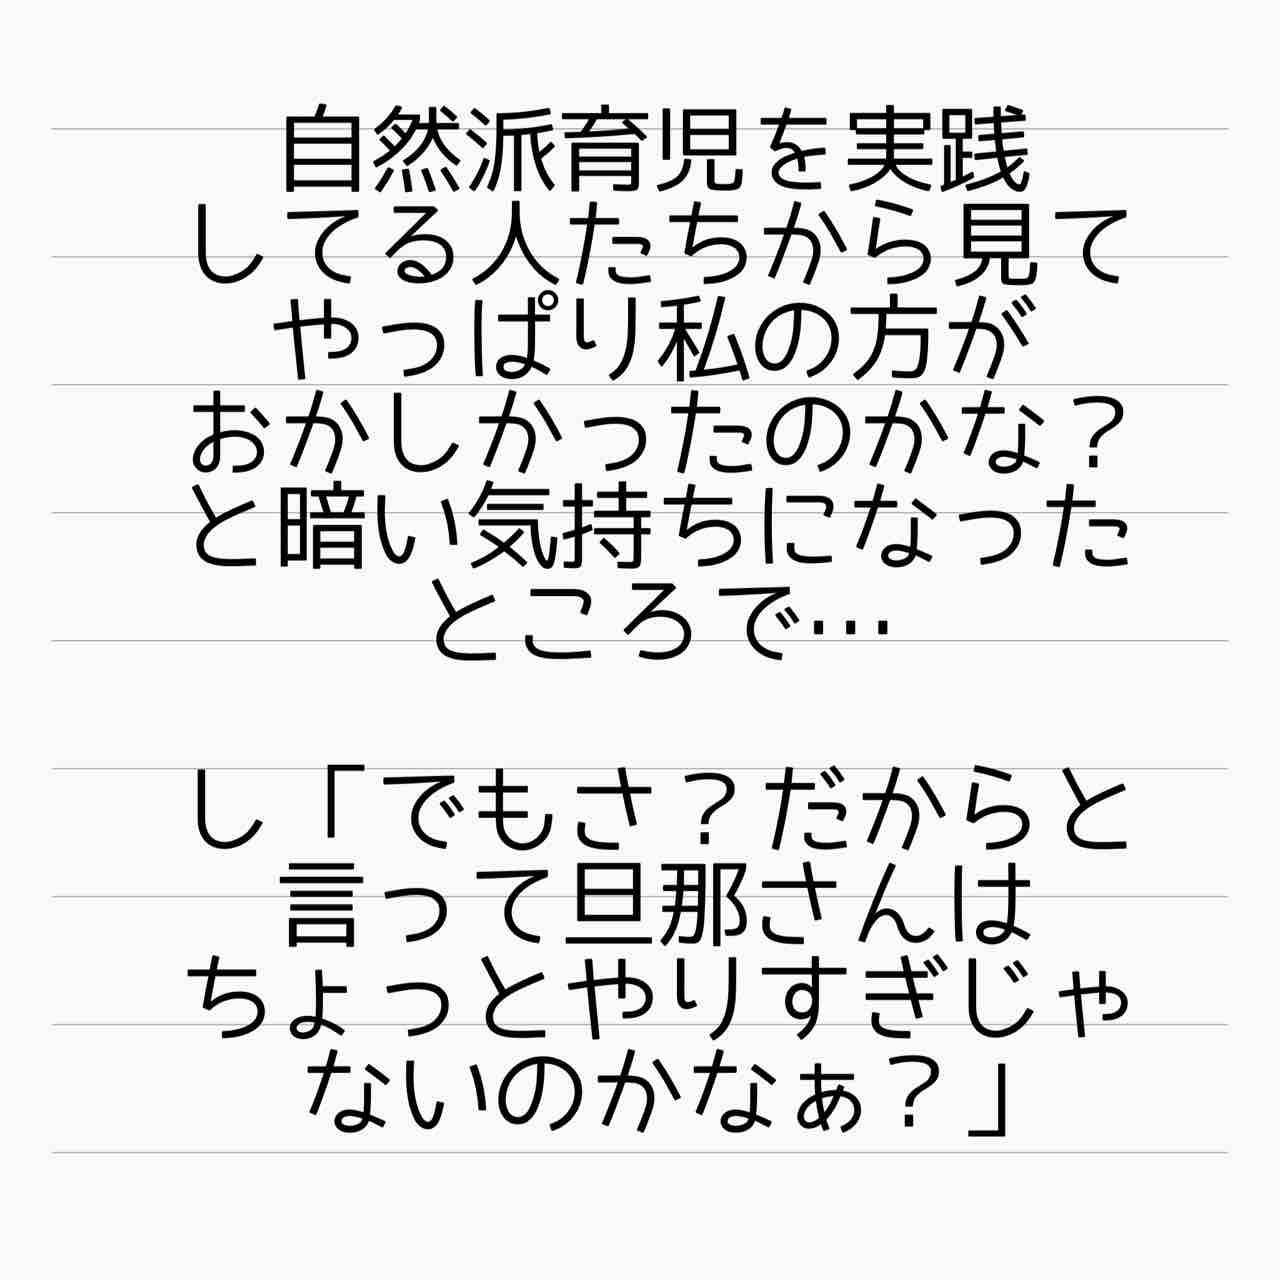 自然派育児を実践
してる人たちから見て
やっぱり私の方が
おかしかったのかな？
と暗い気持ちになった
ところで…
し「でもさ？だからと
言って旦那さんは
ちょっとやりすぎじゃ
ないのかなぁ？」